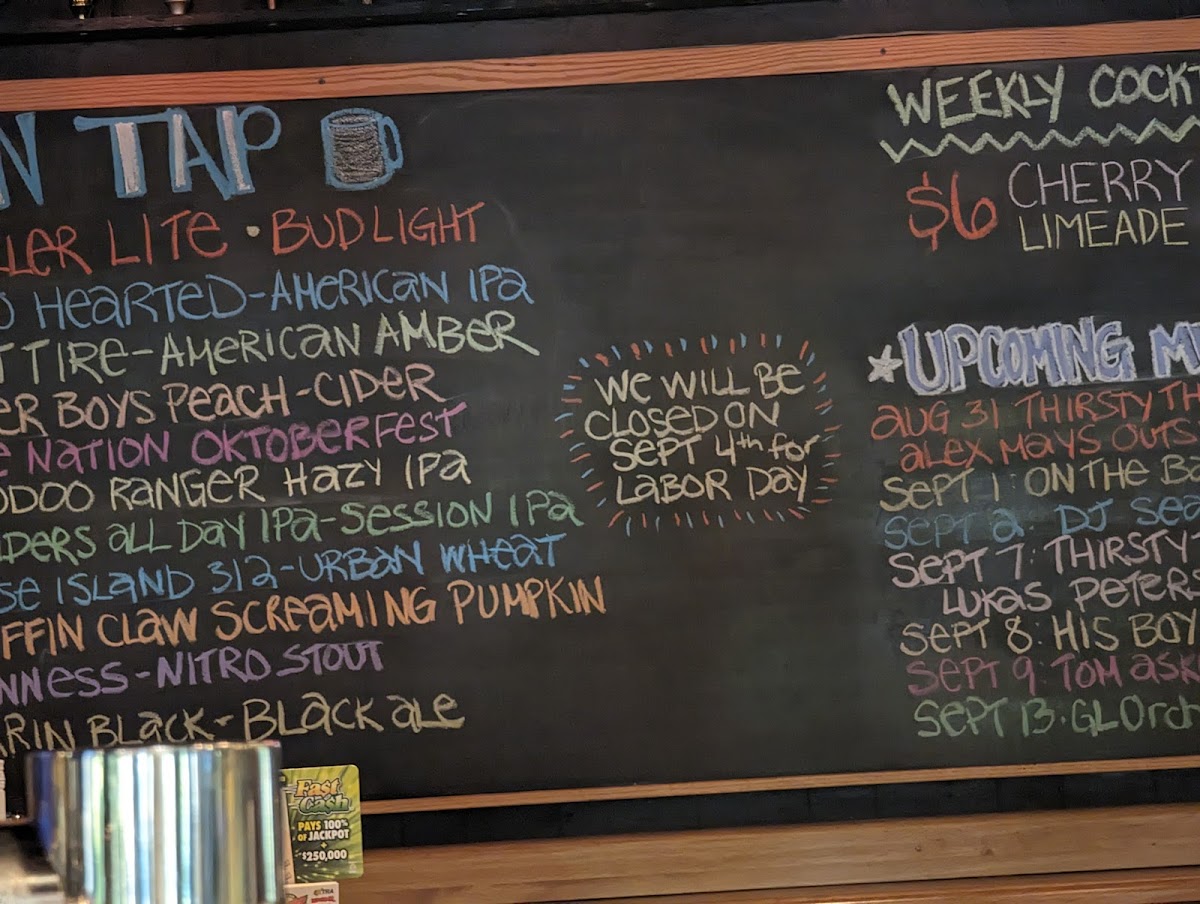 N TAP
LLER LITE • BUD LIGHT
O HEARTED-AMERICAN IPA
T TIRE-AMERICAN AMBER
ER BOYS PEACH-CIDER
E NATION OKTOBERFEST
ODOO RANGER HAZY IPA
NDERS ALL DAY IPA-SESSION IPA
SE ISLAND 312-URBAN WHEAT
FFIN CLAW SCREAMING PUMPKIN
NNESS-NITRO STOUT
ARIN BLACK-BLACK ALE
WE WILL BE
CLOSED ON
SEPT 4th for
LABOR DAY
WEEKLY COCKT
$6 CHERRY
LIMEADE
UPCOMING MU
AUG 31 THIRSTY TH
ALEX MAYS OUTS
SEPT 1: ON THE BA
SEPT 2: DJ SEA
SEPT 7: THIRSTY
LUKAS PETERS
SEPT 8: HIS BOY
SEPT 9: TOM ASK
SEPT 13: GLOrch
Fast
Cash
PAYS 100%
OF JACKPOT
+
$250,000